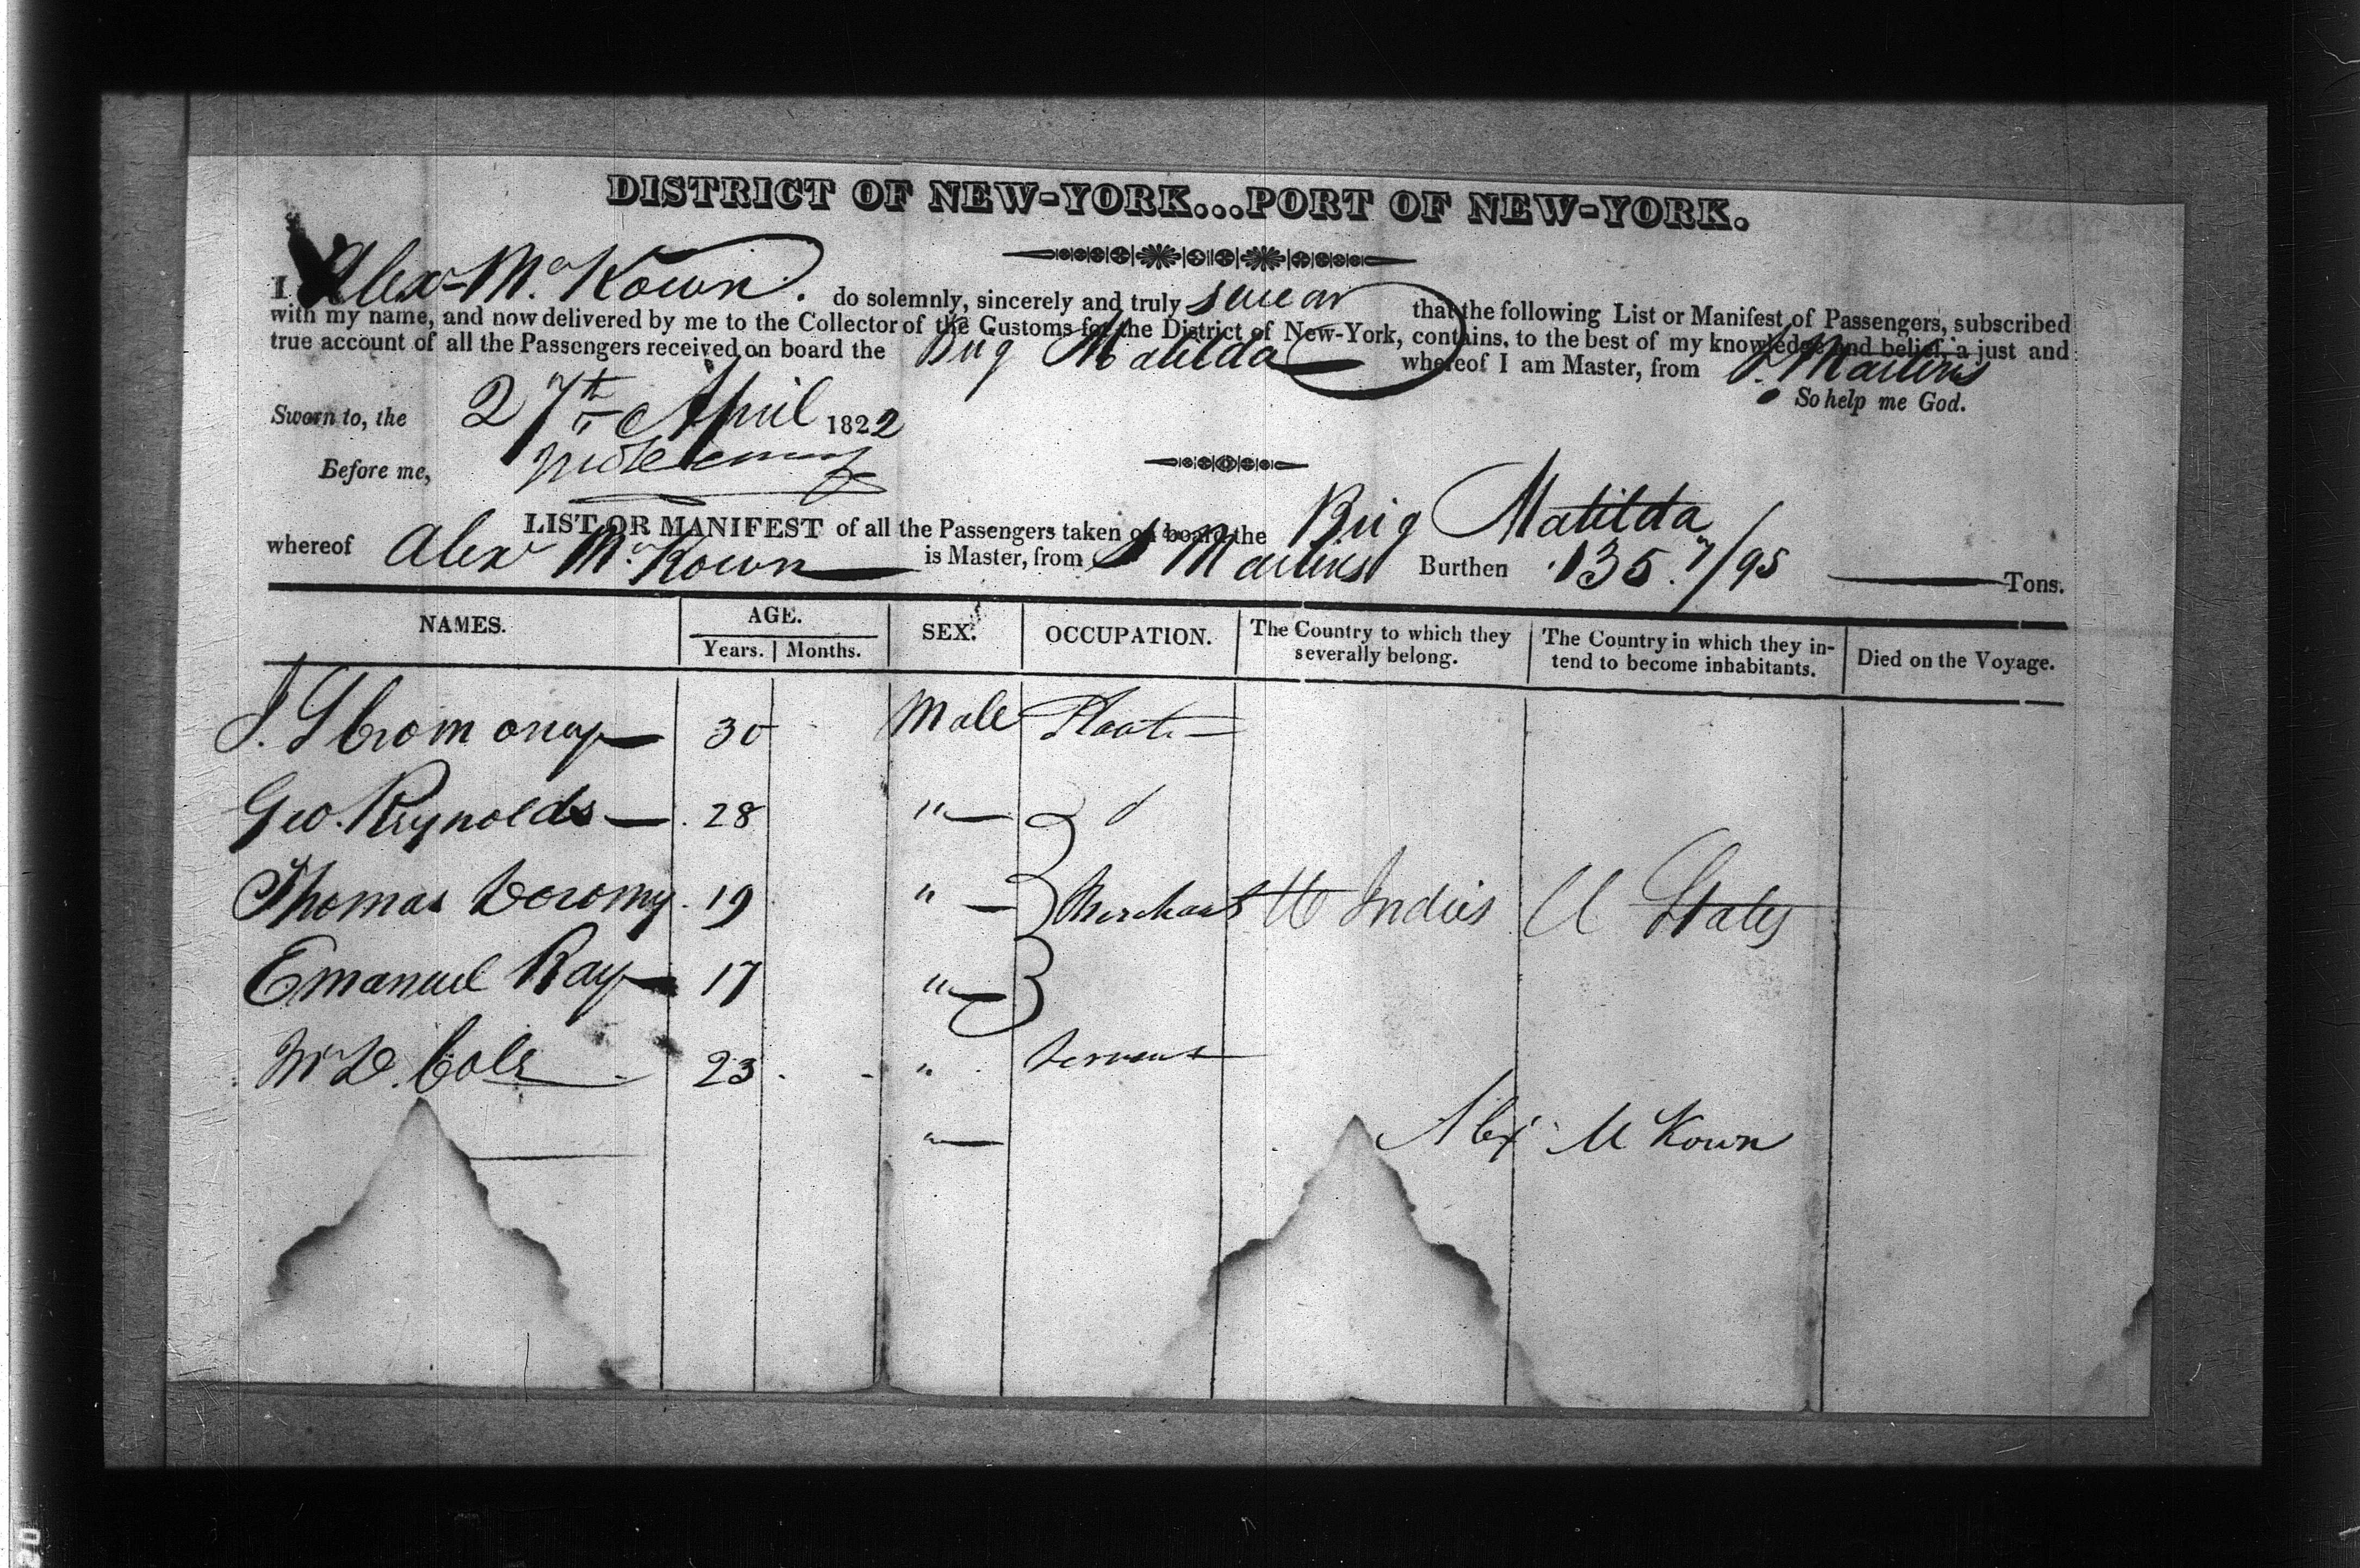 DISTRICT OF NEW-YORK...PORT OF NEW-YORK.
I Alexr McKown. do solemnly, sincerely and truly swear that the following List or Manifest of Passengers, subscribed
with my name, and now delivered by me to the Collector of the Customs for the District of New-York, contains, to the best of my knowledge and belief, a just and
true account of all the Passengers received on board the Brig Matilda whereof I am Master, from St Martins
So help me God.
Sworn to, the 27th April 1822
Before me,
LIST OR MANIFEST of all the Passengers taken on board the Brig Matilda
whereof Alexr McKown is Master, from St Martins Burthen 135 7/95 Tons.
NAMES. AGE. SEX. OCCUPATION. The Country to which they severally belong. The Country in which they intend to become inhabitants. Died on the Voyage.
Years. Months.
J. 30 Male
Geo. Reynolds 28 " d
Thomas 19 " Merchant W Indies U States
Emanuel Ray 17 "
Cole 23 " Servant
"
Alexr McKown